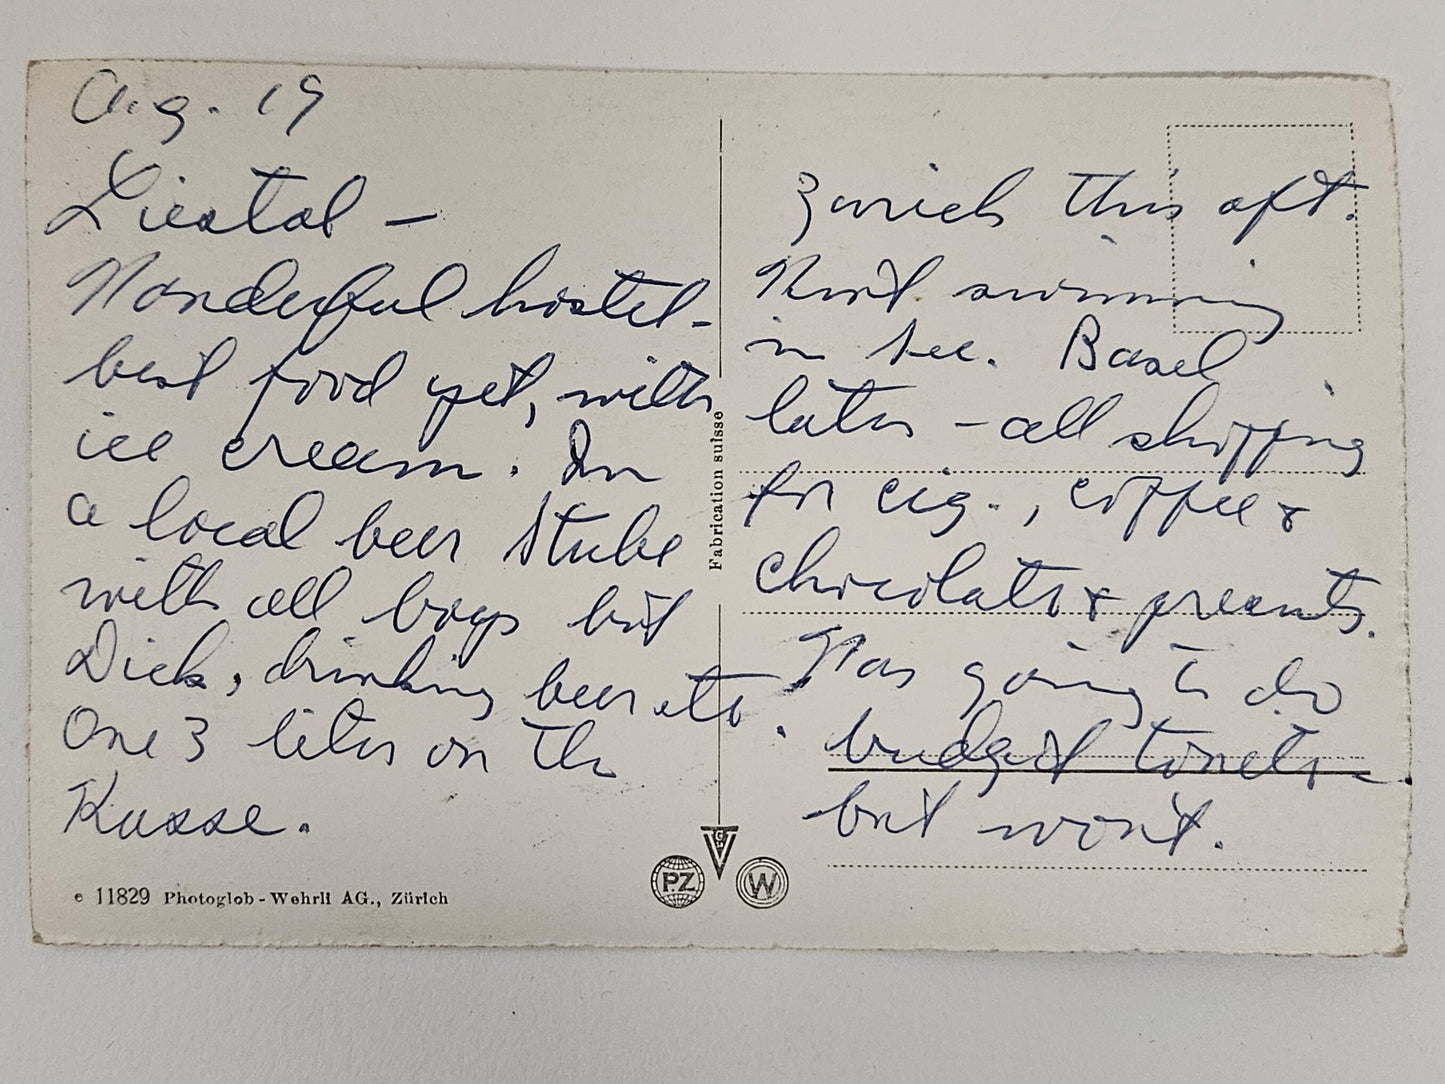 Aug. 19
Liestal –
Wonderful hostel -
best food yet, with
ice cream. In
a local beer stube
with all boys but
Dick, drinking beer etc.
One 3 liter on the
Kasse.
e 11829 Photoglob-Wehrli AG., Zürich
Fabrication suisse
PZ
W
Zurich this aft.
Went swimming
in See. Basel
later – all shopping
for cig., coffee &
chocolate & presents.
Was going to do
budget
but won't.